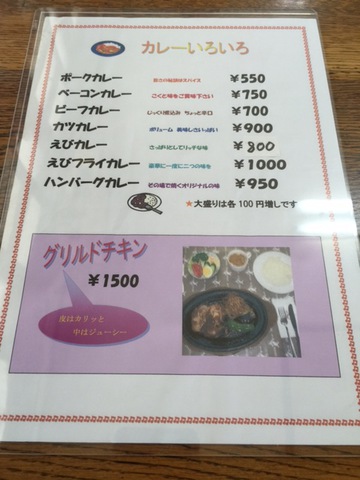 カレーいろいろ
ポークカレー 旨さの秘訣はスパイス ¥550
ベーコンカレー こくと味をご賞味下さい ¥750
ビーフカレー じっくり煮込み ちょっと辛口 ¥700
カツカレー ボリューム 美味しさいっぱい ¥900
えびカレー さっぱりとしてリッチな味 ¥800
えびフライカレー 豪華に一度に二つの味を ¥1000
ハンバーグカレー その場で焼くオリジナルの味 ¥950
★大盛りは各100円増しです
グリルドチキン
¥1500
皮はカリッと
中はジューシー